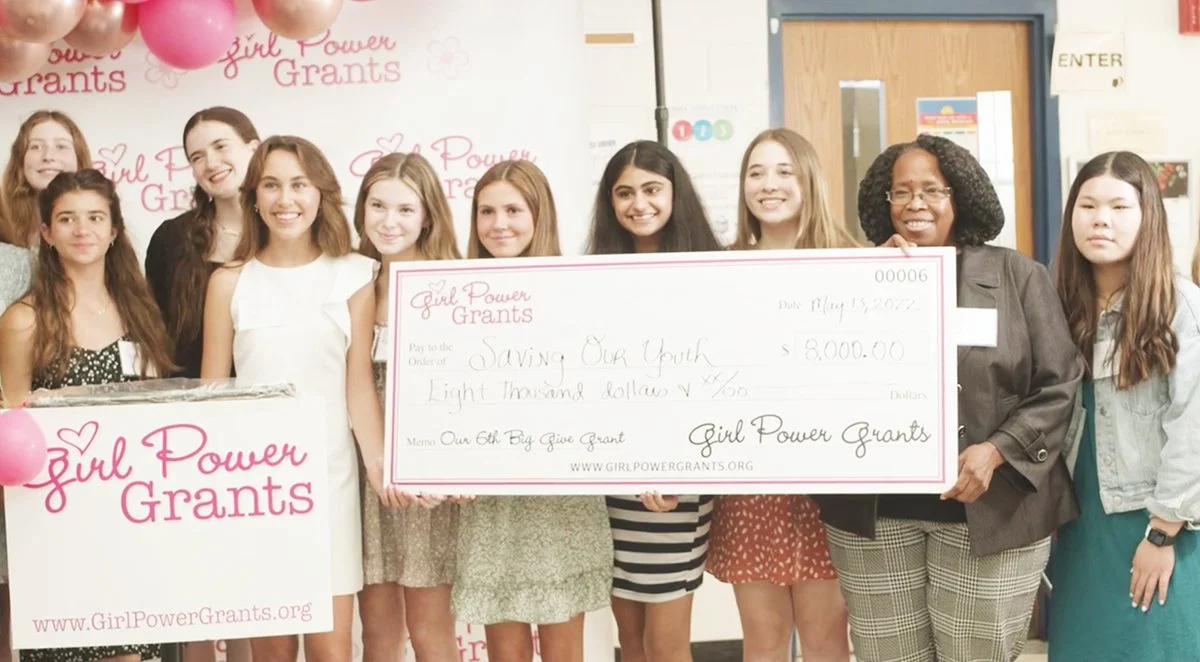 Girl Power
Grants
Girl Power
Grants
Girl Power
Girl Power
ENTER
1 2 3
00006
Girl Power
Grants
Date May 13, 2022
Pay to the
Order of Saving Our Youth $ 8,000.00
Eight Thousand dollars & xx/00 Dollars
Memo Our 6th Big Give Grant Girl Power Grants
WWW.GIRLPOWERGRANTS.ORG
Girl Power
Grants
www.GirlPowerGrants.org